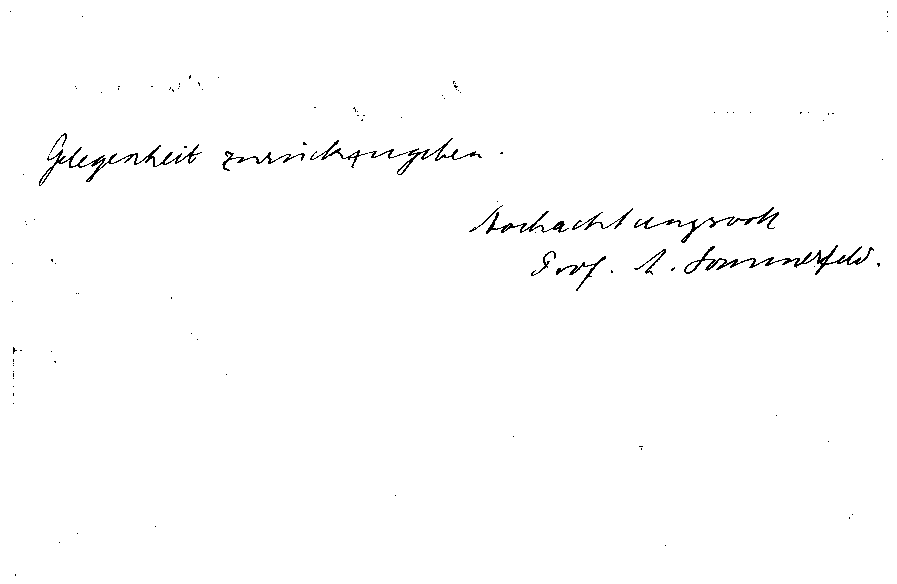 Gelegenheit zurückzugeben.
Hochachtungsvoll
Prof. A. Sommerfeld.